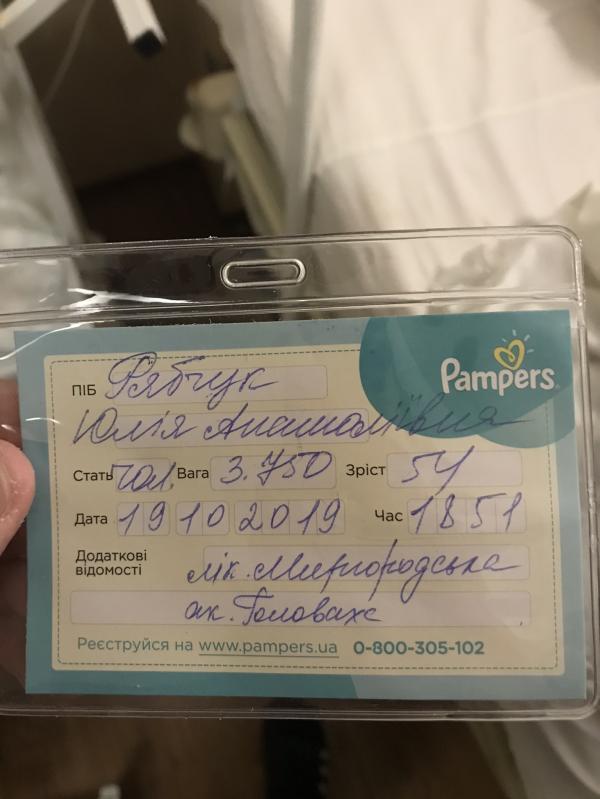 Pampers
ПІБ Рябчук
Юлія Анатоліївна
Стать чол. Вага 3.750 Зріст 54
Дата 19 10 2019 Час 1851
Додаткові відомості лік. Миргородська
ак. Головахс
Реєструйся на www.pampers.ua 0-800-305-102